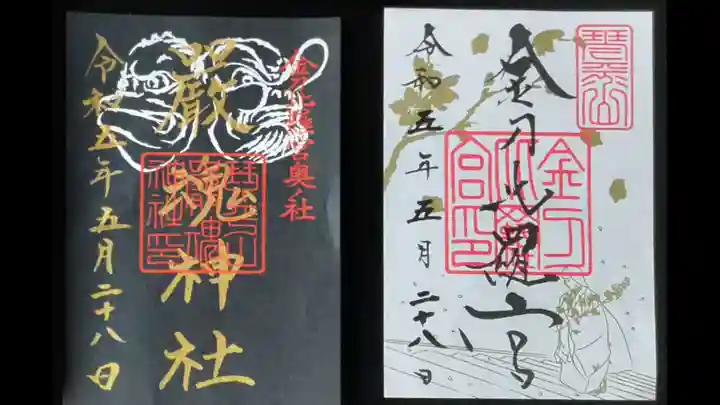 金刀比羅宮奥社
嚴魂神社
令和五年五月二十八日
金刀比羅宮
令和五年五月二十八日